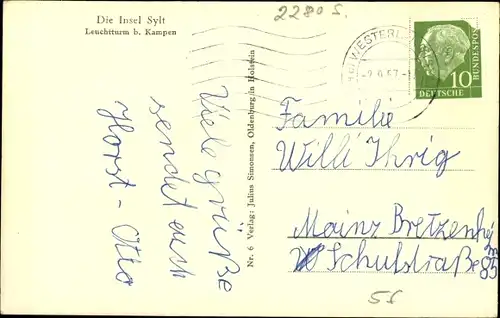 Die Insel Sylt
Leuchtturm b. Kampen
2280 S.
WESTERLAND
-2.9.57-
10
DEUTSCHE
BUNDESPOST
Viele grüße
sendet euch
Horst - Otto
Nr. 6 Verlag: Julius Simonsen, Oldenburg in Holstein
Familie
Willi Ihrig
Mainz Bretzenheim
Schulstraße 85
56